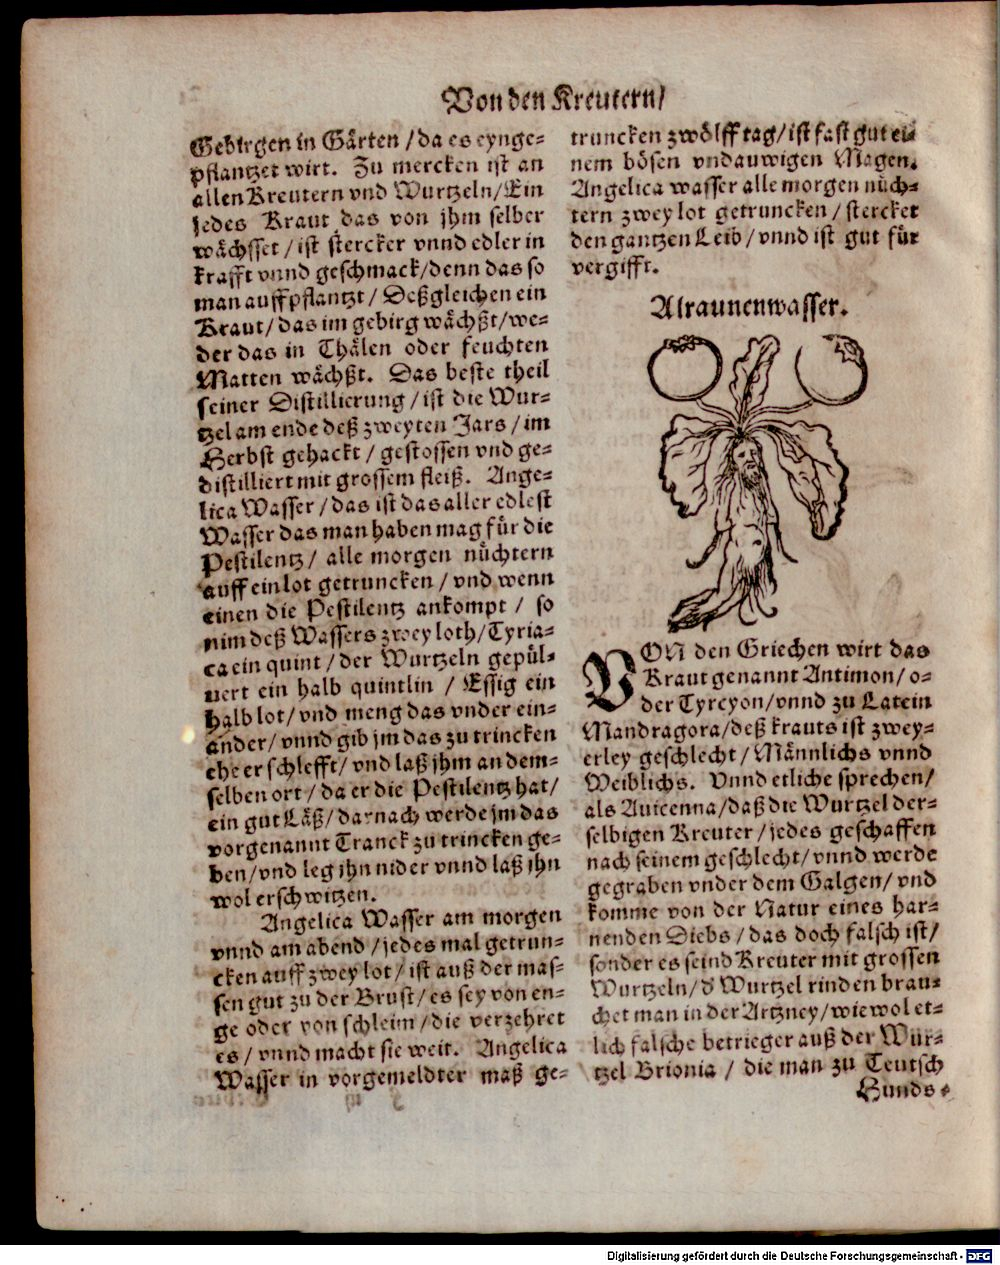 Von den Kreutern/
Gebirgen in Gärten / da es eynge-
pflantzet wirt. Zu mercken ist an
allen Kreutern vnd Wurtzeln/ Ein
jedes Kraut das von jhm selber
wächsset / ist stercker vnnd edler in
krafft vnnd geschmack/denn das so
man auffpflantzt / Deßgleichen ein
Kraut/ das im gebirg wächßt/we-
der das in Thälen oder feuchten
Matten wächßt. Das beste theil
seiner Distillierung / ist die Wur-
tzel am ende deß zweyten Jars / im
Herbst gehackt / gestossen vnd ge-
distilliert mit grossem fleiß. Ange-
lica Wasser / das ist das aller edlest
Wasser das man haben mag für die
Pestilentz / alle morgen nüchtern
auff ein lot getruncken / vnd wenn
einen die Pestilentz ankompt / so
nim deß Wassers zwey loth/Tyria-
ca ein quint / der Wurtzeln gepül-
uert ein halb quintlin / Essig ein
halb lot/ vnd meng das vnder ein-
ander/ vnnd gib jm das zu trincken
ehe er schlefft/ vnd laß jhm an dem-
selben ort / da er die Pestilentz hat/
ein gut Läß/ darnach werde jm das
vorgenannt Tranck zu trincken ge-
ben/vnd leg jhn nider vnnd laß jhn
wol erschwitzen.
Angelica Wasser am morgen
vnnd am abend / jedes mal getrun-
cken auff zwey lot / ist auß der mas-
sen gut zu der Brust / es sey von en-
ge oder von schleim / die verzehret
es / vnnd macht sie weit. Angelica
Wasser in vorgemeldter maß ge-
truncken zwölff tag/ ist fast gut ei-
nem bösen vndauwigen Magen.
Angelica wasser alle morgen nüch-
tern zwey lot getruncken / stercket
den gantzen Leib / vnnd ist gut für
vergifft.
Alraunenwasser.
VON den Griechen wirt das
Kraut genannt Antimon/ o-
der Tyrcyon/ vnnd zu Latein
Mandragora/ deß krauts ist zwey-
erley geschlecht / Männlichs vnnd
Weiblichs. Vnnd etliche sprechen/
als Auicenna/ daß die Wurtzel der-
selbigen Kreuter / jedes geschaffen
nach seinem geschlecht/ vnnd werde
gegraben vnder dem Galgen/ vnd
komme von der Natur eines har-
nenden Diebs / das doch falsch ist/
sonder es seind Kreuter mit grossen
Wurtzeln/ d' Wurtzel rinden brau-
chet man in der Artzney/ wiewol et-
lich falsche betrieger auß der Wur-
tzel Brionia / die man zu Teutsch
Hunds-
Digitalisierung gefördert durch die Deutsche Forschungsgemeinschaft - DFG